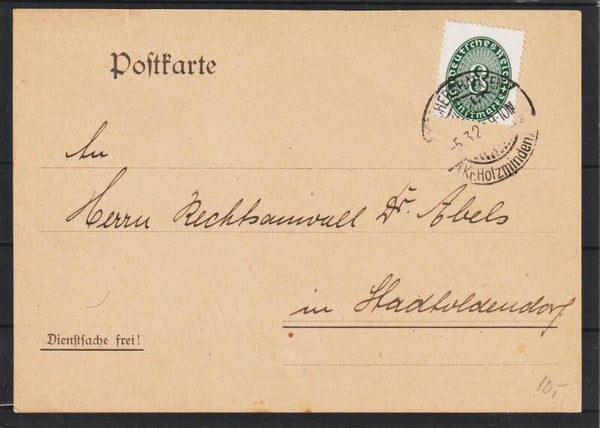 Postkarte
Deutsches Reich
8
Dienstmarke
9-10N
-5.3.2
(Kr. Holzminden)
An
Herrn Rechtsanwalt Dr. Abels
in Stadtoldendorf
Dienstsache frei!
10,-